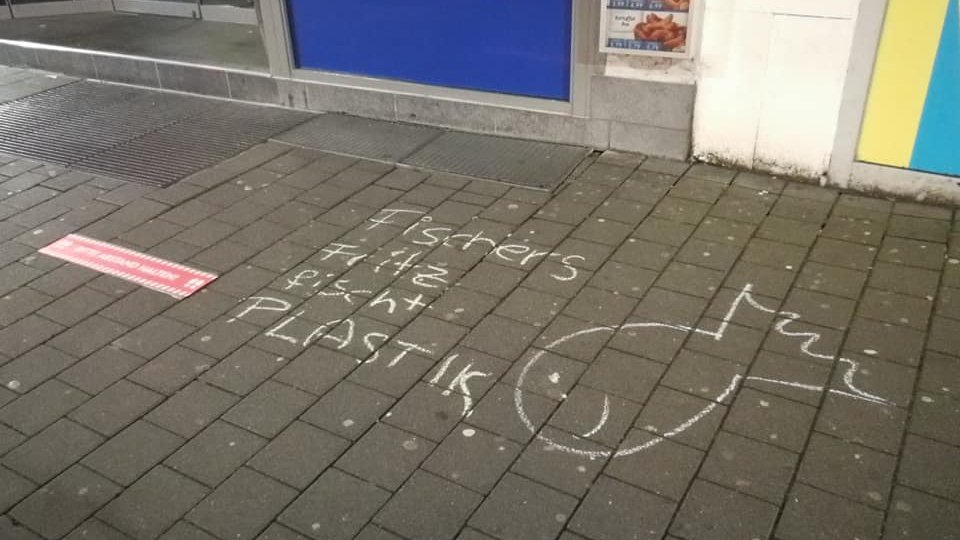 Fischers
Fritz
fischt
PLASTIK
BITTE ABSTAND HALTEN